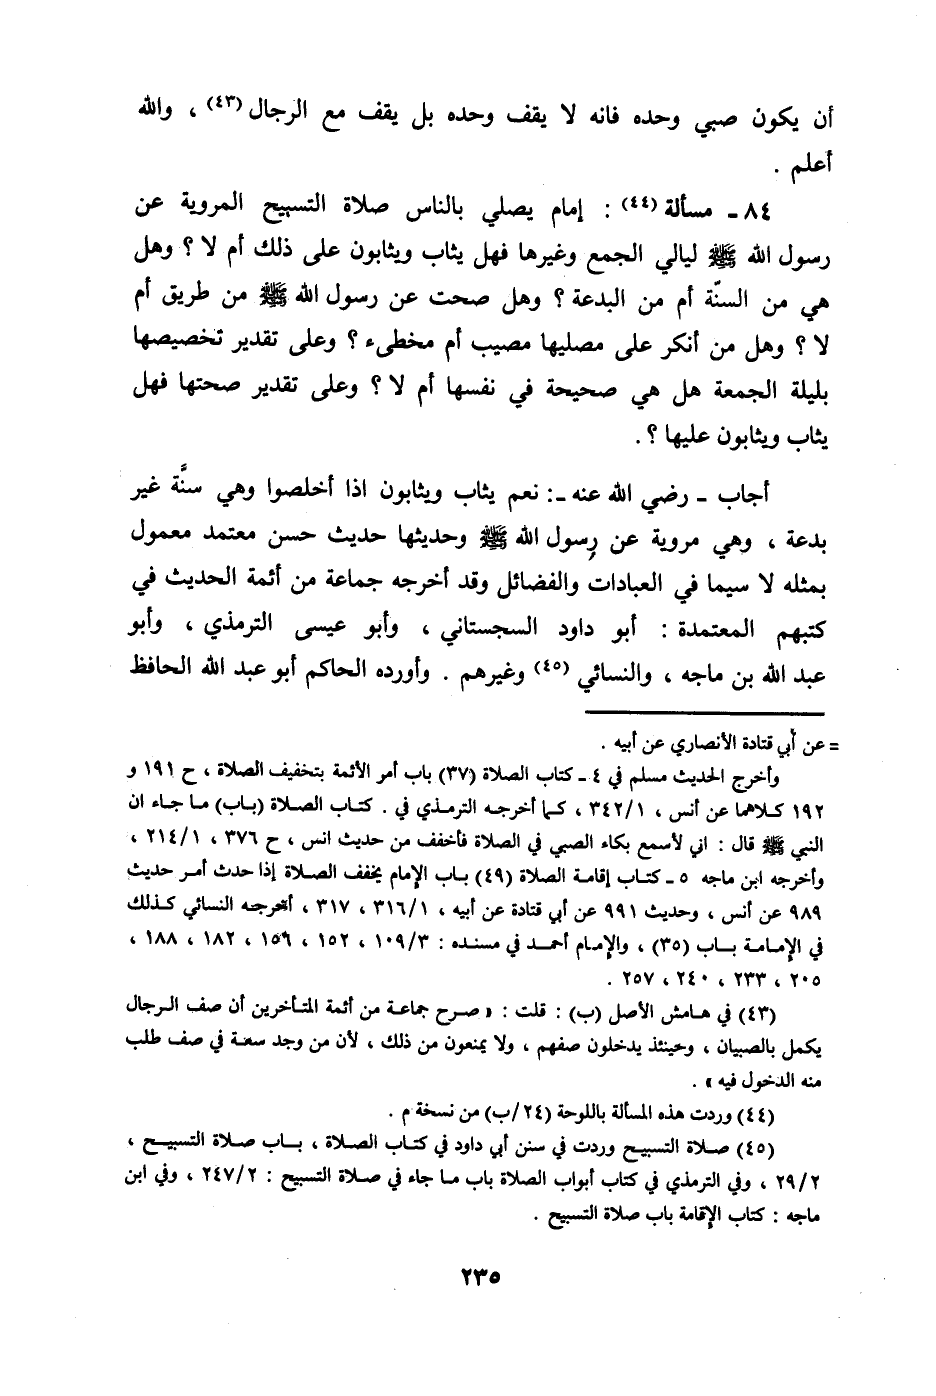 أن يكون صبي وحده فانه لا يقف وحده بل يقف مع الرجال (٤٣) ، والله
أعلم .
٨٤ ـ مسألة (٤٤) : إمام يصلي بالناس صلاة التسبيح المروية عن
رسول الله ﷺ ليالي الجمع وغيرها فهل يثاب ويثابون على ذلك أم لا ؟ وهل
هي من السنّة أم من البدعة ؟ وهل صحت عن رسول الله ﷺ من طريق أم
لا ؟ وهل من أنكر على مصليها مصيب أم مخطىء ؟ وعلى تقدير تخصيصها
بليلة الجمعة هل هي صحيحة في نفسها أم لا ؟ وعلى تقدير صحتها فهل
يثاب ويثابون عليها ؟ .
أجاب ـ رضي الله عنه ـ: نعم يثاب ويثابون اذا أخلصوا وهي سنَّة غير
بدعة ، وهي مروية عن رسول الله ﷺ وحديثها حديث حسن معتمد معمول
بمثله لا سيما في العبادات والفضائل وقد أخرجه جماعة من أئمة الحديث في
كتبهم المعتمدة : أبو داود السجستاني ، وأبو عيسى الترمذي ، وأبو
عبد الله بن ماجه ، والنسائي (٤٥) وغيرهم . وأورده الحاكم أبو عبد الله الحافظ
= عن أبي قتادة الأنصاري عن أبيه .
وأخرج الحديث مسلم في ٤ ـ كتاب الصلاة (٣٧) باب أمر الأئمة بتخفيف الصلاة ، ح ١٩١ و
١٩٢ كلاهما عن أنس ، ٣٤٢/١ ، كما أخرجه الترمذي في . كتاب الصلاة (باب) ما جاء ان
النبي ﷺ قال : اني لأسمع بكاء الصبي في الصلاة فأخفف من حديث انس ، ح ٣٧٦ ، ٢١٤/١ ،
وأخرجه ابن ماجه ٥ ـ كتاب إقامة الصلاة (٤٩) باب الإمام يخفف الصلاة إذا حدث أمر حديث
٩٨٩ عن أنس ، وحديث ٩٩١ عن أبي قتادة عن أبيه ، ٣١٦/١ ، ٣١٧ ، أخرجه النسائي كذلك
في الإمامة باب (٣٥) ، والإمام أحمد في مسنده : ١٠٩/٣ ، ١٥٢ ، ١٥٦ ، ١٨٢ ، ١٨٨ ،
٢٠٥ ، ٢٣٣ ، ٢٤٠ ، ٢٥٧ .
(٤٣) في هامش الأصل (ب) : قلت : « صرح جماعة من أئمة المتأخرين أن صف الرجال
يكمل بالصبيان ، وحينئذ يدخلون صفهم ، ولا يمنعون من ذلك ، لأن من وجد سعة في صف طلب
منه الدخول فيه » .
(٤٤) وردت هذه المسألة باللوحة (٢٤/ب) من نسخة م .
(٤٥) صلاة التسبيح وردت في سنن أبي داود في كتاب الصلاة ، باب صلاة التسبيح ،
٢٩/٢ ، وفي الترمذي في كتاب أبواب الصلاة باب ما جاء في صلاة التسبيح : ٢٤٧/٢ ، وفي ابن
ماجه : كتاب الإقامة باب صلاة التسبيح .
٢٣٥